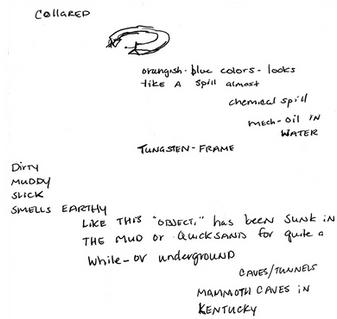 COllARED
orangish-blue colors - looks
like A spill almost
chemical spill
mech-oil IN
WATER
TUNGSTEN-FRAME
DIrTy
MUDDY
SLICK
SMELLS EARTHY
LIKE THIS "OBJECT," has been SUNK IN
THE MUD or QUICKSAND for quite a
while - or underground
CAVES/TUNNELS
MAMMOTH CAVES IN
KENTUCKY